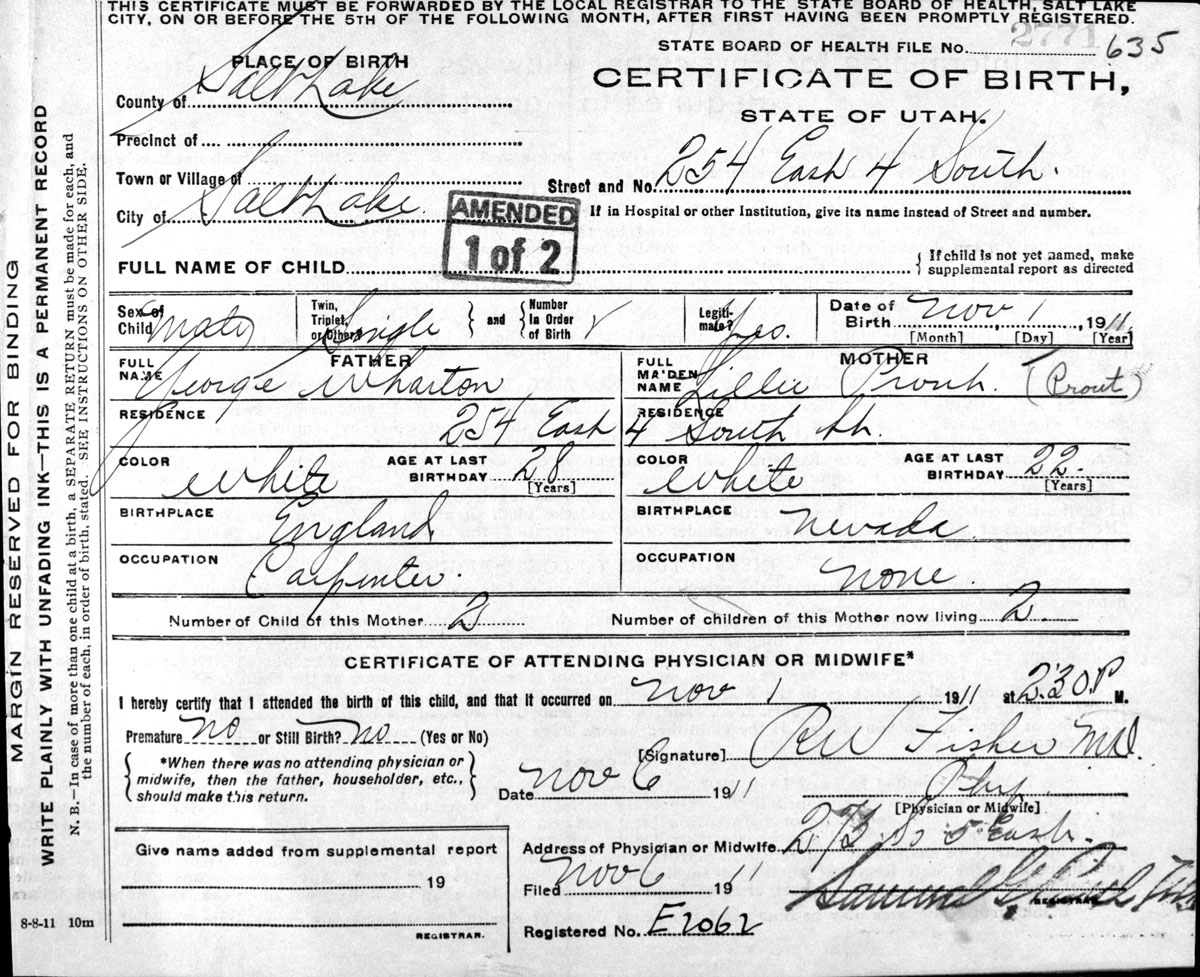 THIS CERTIFICATE MUST BE FORWARDED BY THE LOCAL REGISTRAR TO THE STATE BOARD OF HEALTH, SALT LAKE
CITY, ON OR BEFORE THE 5TH OF THE FOLLOWING MONTH, AFTER FIRST HAVING BEEN PROMPTLY REGISTERED.
STATE BOARD OF HEALTH FILE No. 2771 635
PLACE OF BIRTH
CERTIFICATE OF BIRTH,
STATE OF UTAH.
County of Salt Lake
Precinct of
Town or Village of
Street and No. 254 East 4 South.
City of Salt Lake.
If in Hospital or other Institution, give its name instead of Street and number.
AMENDED
1 of 2
FULL NAME OF CHILD
If child is not yet named, make
supplemental report as directed
Sex of Child Male
Twin, Triplet, or Other? Single
and
Number In Order of Birth
Legiti-mate? Yes.
Date of Birth Nov 1, 1911
[Month] [Day] [Year]
FATHER
FULL NAME George Wharton
MOTHER
FULL MAIDEN NAME Lillie Prouh. (Prout)
RESIDENCE 254 East
RESIDENCE 4 South
COLOR White
AGE AT LAST BIRTHDAY 28
[Years]
COLOR White
AGE AT LAST BIRTHDAY 22
[Years]
BIRTHPLACE England.
BIRTHPLACE Nevada
OCCUPATION Carpenter.
OCCUPATION None.
Number of Child of this Mother 2
Number of children of this Mother now living 2
CERTIFICATE OF ATTENDING PHYSICIAN OR MIDWIFE*
I hereby certify that I attended the birth of this child, and that it occurred on Nov 1 1911 at 2:30 P M.
Premature No or Still Birth? No (Yes or No)
[Signature] RW Fisher MD.
*When there was no attending physician or
midwife, then the father, householder, etc.,
should make this return.
Date Nov 6 1911
Phy.
[Physician or Midwife]
Address of Physician or Midwife So 5 East.
Filed Nov 6 1911
Samuel G. Paul
REGISTRAR.
Registered No. E2062
Give name added from supplemental report
19
REGISTRAR.
8-8-11 10m
MARGIN RESERVED FOR BINDING
WRITE PLAINLY WITH UNFADING INK—THIS IS A PERMANENT RECORD
N. B.—In case of more than one child at a birth, a SEPARATE RETURN must be made for each, and
the number of each, in order of birth, stated. SEE INSTRUCTIONS ON OTHER SIDE.